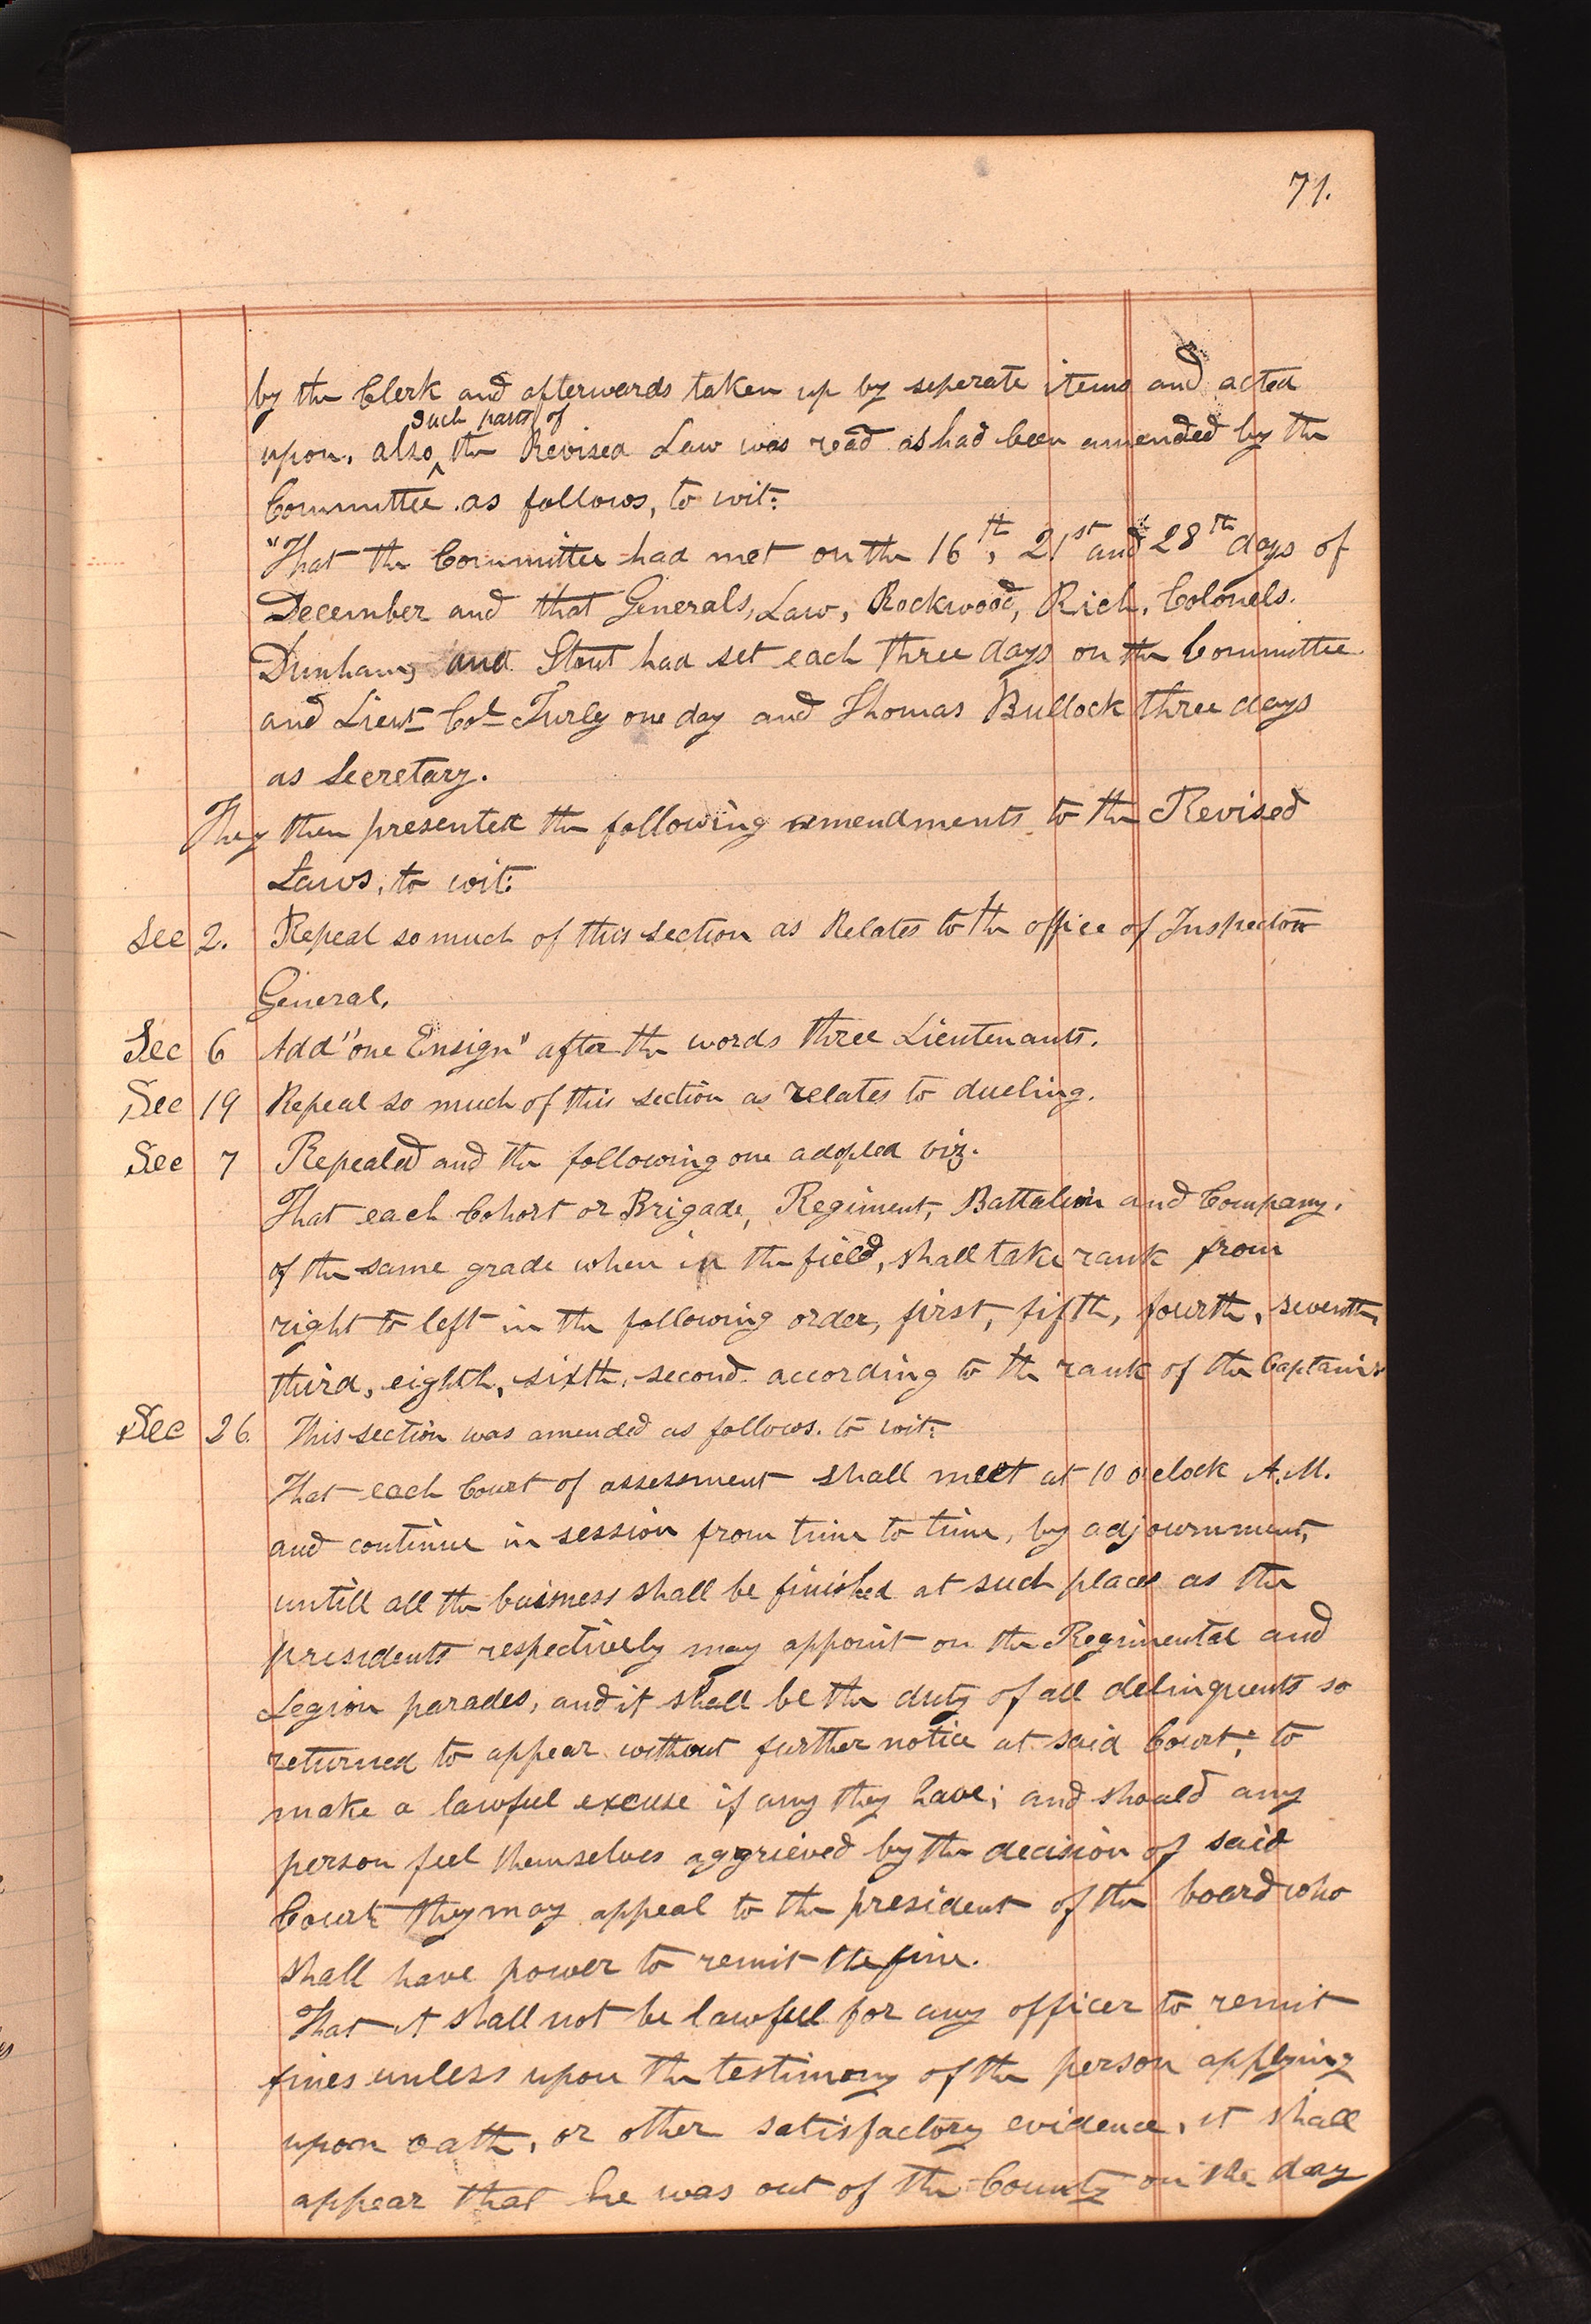 71.
by the Clerk and afterwards taken up by seperate items and acted
such parts of
upon, also ^ the Revised Law was read as had been amended by the
Committee as follows, to wit:
"That the Committee had met on the 16th, 21st and 28th days of
December and that Generals, Law, Rockwood, Rich, Colonels.
Dunham, and Stout had set each three days on the Committee
and Lieut Col Turly one day and Thomas Bullock three days
as Secretary.
They then presented the following amendments to the Revised
Laws, to wit:
Sec 2. Repeal so much of this section as Relates to the office of Inspector
General.
Sec 6 Add "one Ensign" after the words three Lieutenants.
Sec 19 Repeal so much of this section as relates to dueling.
Sec 7 Repealed and the following one adopted viz.
That each Cohort or Brigade, Regiment, Battalion and Company,
of the same grade when in the field, shall take rank from
right to left in the following order, first, fifth, fourth, seventh,
third, eighth, sixth, second according to the rank of the Captains
Sec 26. This section was amended as follows. to wit:
That each Court of assessment shall meet at 10 oclock A.M.
and continue in session from time to time, by adjournment,
untill all the buisness shall be finished at such places as the
presidents respectively may appoint on the Regimental and
Legion parades, and it shall be the duty of all delinquents so
returned to appear without further notice at said Court, to
make a lawful excuse if any they have; and should any
person feel themselves aggrieved by the decision of said
Court they may appeal to the president of the board who
shall have power to remit the fine.
That it shall not be lawfull for any officer to remit
fines unless upon the testimony of the person applying
upon oath, or other satisfactory evidence, it shall
appear that he was out of the County on the day